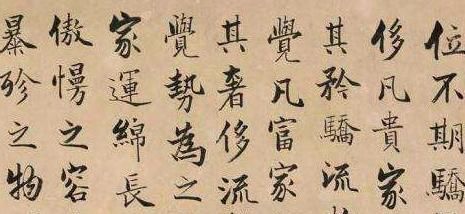 位不期驕
侈凡貴家
其矜驕流
覺凡富家
其奢侈流
覺勢為之
家運綿長
傲慢之容
暴殄之物